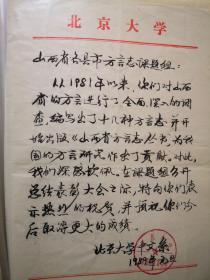 北京大学
山西省各县市方言志课题组：
从1981年以来，你们对山西
省的方言进行了全面、深入的调
查，编写出了十几种方言志，并开
始出版《山西省方言志丛书》，为我
国的方言研究作出了贡献，对此，
我们深感钦佩。在课题组召开
总结表彰大会之际，特向你们表
示热烈的祝贺，并预祝你们今
后取得更大的成绩。
北京大学中文系